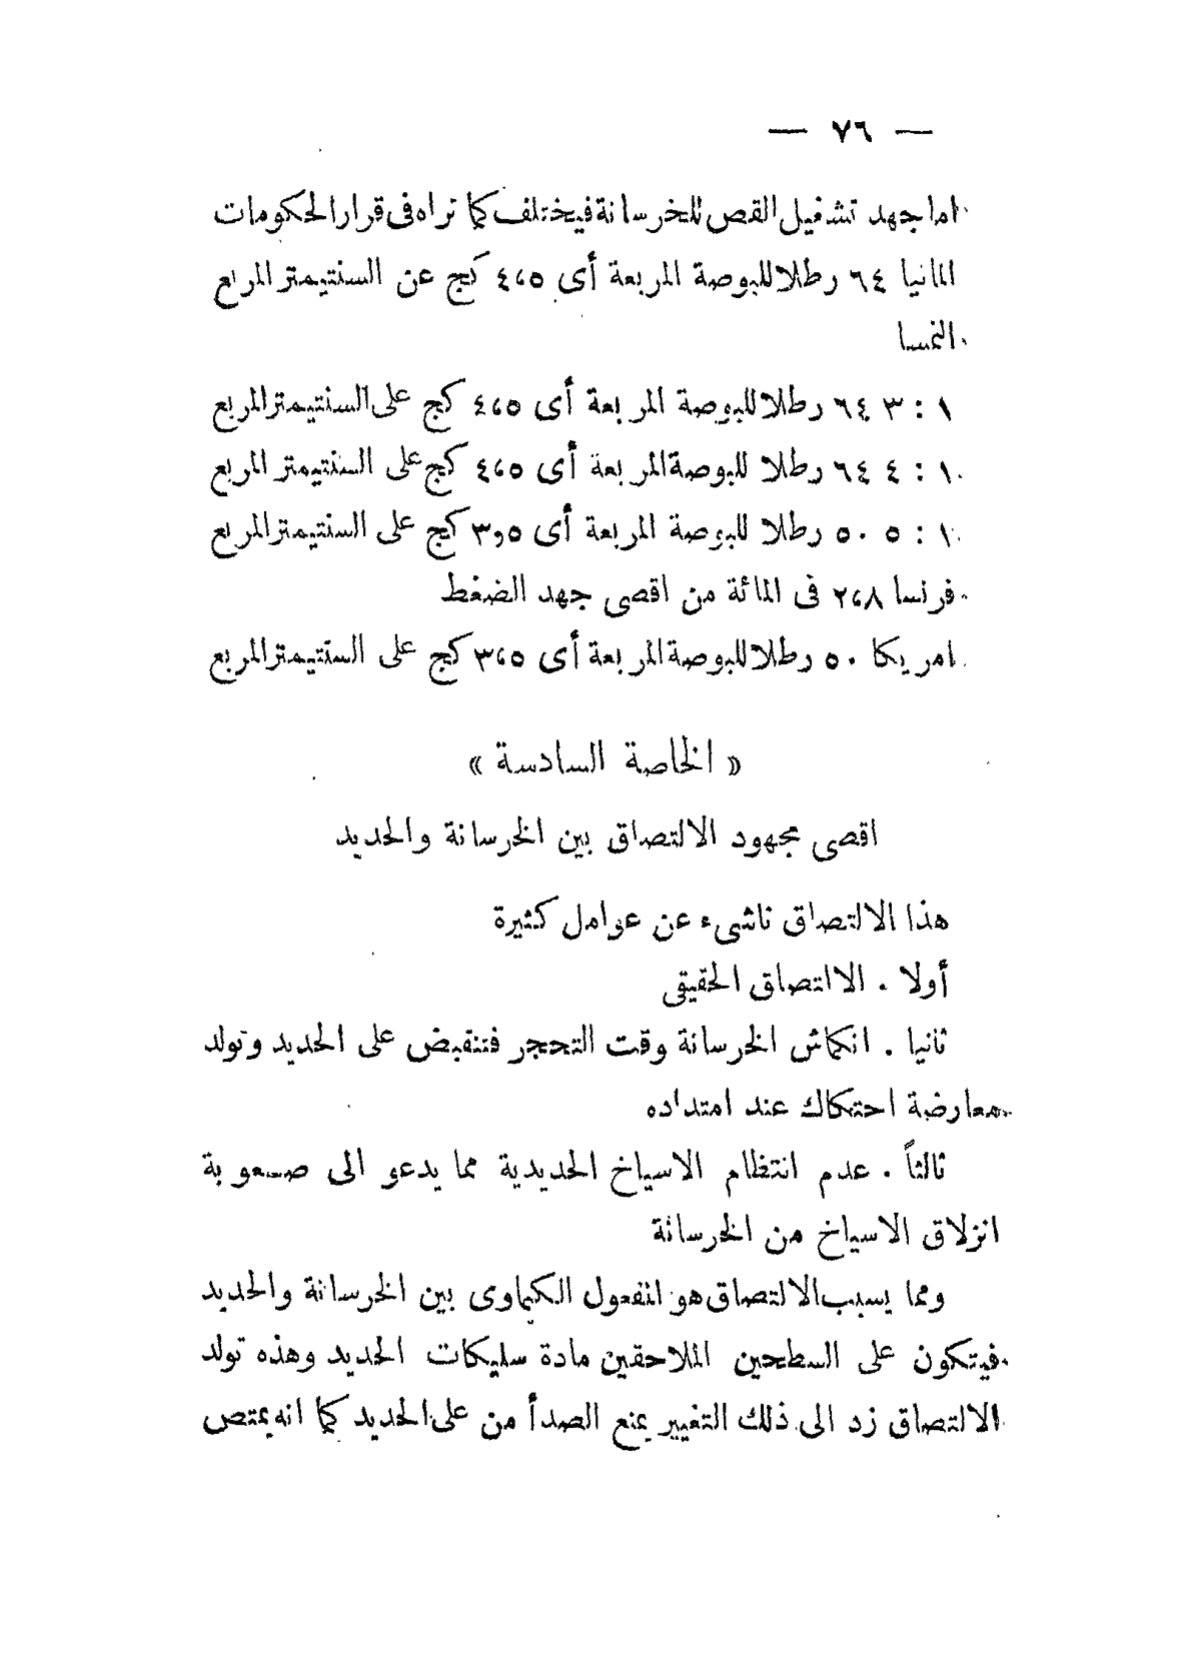 — ٧٦ —
اما جهد تشغيل القص للخرسانة فيختلف كما تراه فى قرار الحكومات
المانيا ٦٤ رطلا للبوصة المربعة أى ٤،٥ كج عن السنتيمتر المربع
النمسا
١ : ٣ ٦٤ رطلا للبوصة المربعة أى ٤،٥ كج على السنتيمتر المربع
١ : ٤ ٦٤ رطلا للبوصة المربعة أى ٤،٥ كج على السنتيمتر المربع
١ : ٥ ٥٠ رطلا للبوصة المربعة أى ٣,٥ كج على السنتيمتر المربع
فرنسا ٢،٨ فى المائة من اقصى جهد الضغط
امريكا ٥٠ رطلا للبوصة المربعة أى ٣،٥ كج على السنتيمتر المربع
« الخاصة السادسة »
اقصى مجهود الالتصاق بين الخرسانة والحديد
هذا الالتصاق ناشىء عن عوامل كثيرة
أولا . الاالتصاق الحقيقى
ثانيا . انكماش الخرسانة وقت التحجر فتنقبض على الحديد وتولد
معارضة احتكاك عند امتداده
ثالثاً . عدم انتظام الاسياخ الحديدية مما يدعو الى صعوبة
انزلاق الاسياخ من الخرسانة
ومما يسبب الالتصاق هو المفعول الكيماوى بين الخرسانة والحديد
فيتكون على السطحين الملاحقين مادة سليكات الحديد وهذه تولد
الالتصاق زد الى ذلك التغيير يمنع الصدأ من على الحديد كما انه يمتص